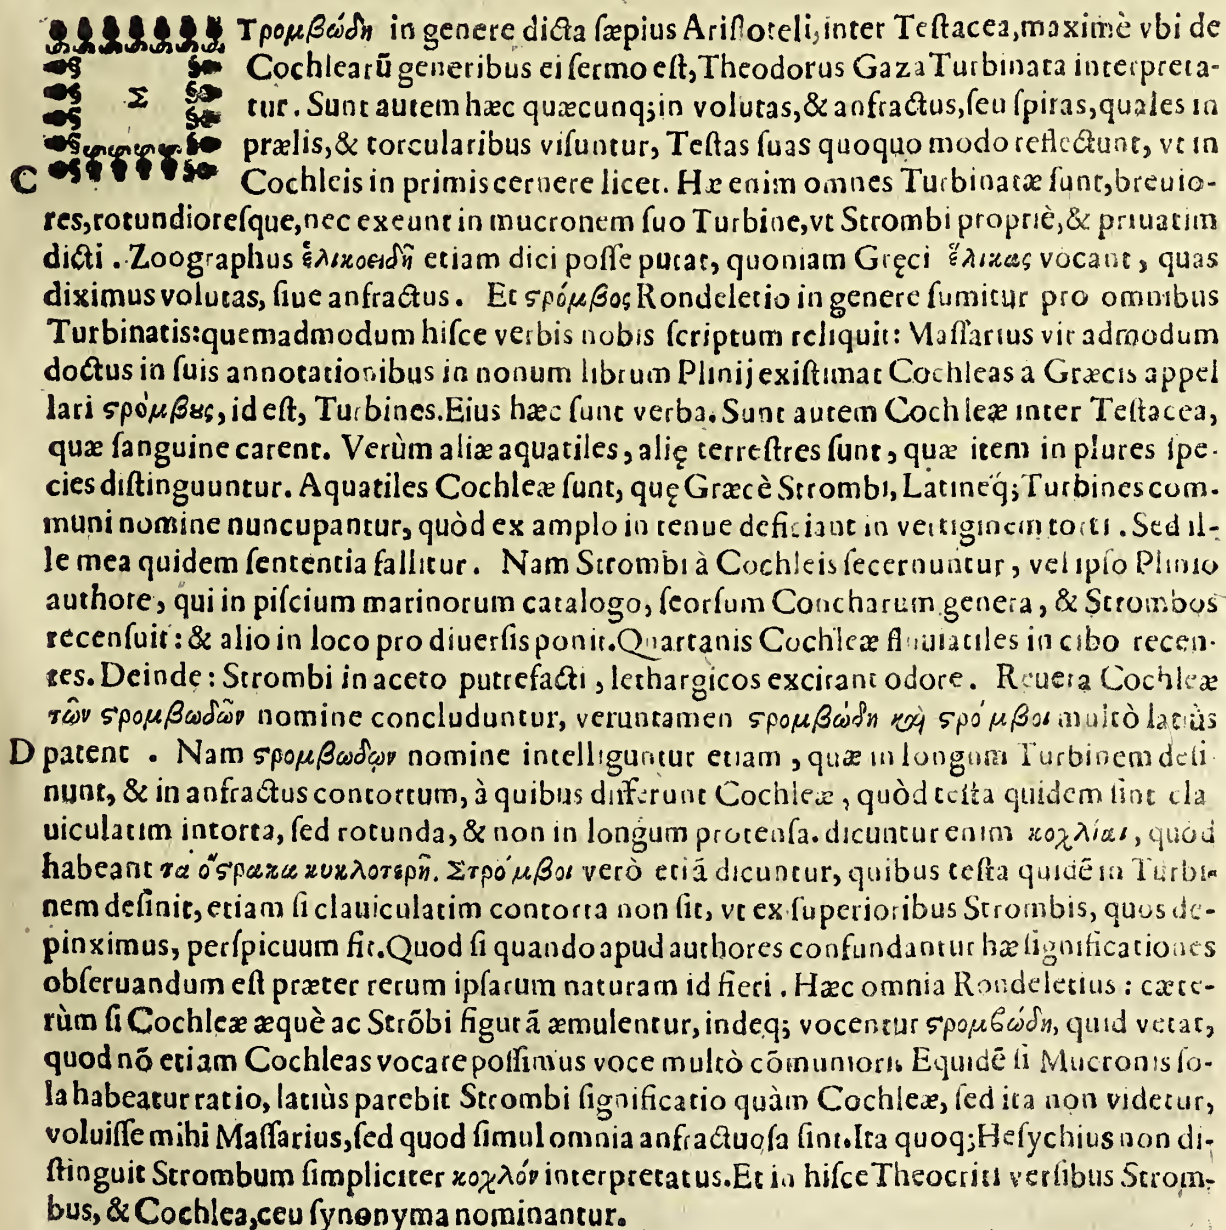 ΣΤρομβώδη in genere dicta sæpius Aristoteli, inter Testacea, maximè vbi de
Cochlearũ generibus ei sermo est, Theodorus Gaza Turbinata interpreta-
tur. Sunt autem hæc quæcunq; in volutas, & anfractus, seu spiras, quales in
prælis, & torcularibus visuntur, Testas suas quoquo modo reflectunt, vt in
C Cochleis in primis cernere licet. Hæ enim omnes Turbinatæ sunt, breuio-
res, rotundioresque, nec exeunt in mucronem suo Turbine, vt Strombi propriè, & priuatim
dicti. Zoographus ἑλικοειδῆ etiam dici posse putat, quoniam Gręci ἕλικας vocant, quas
diximus volutas, siue anfractus. Et ϛρόμβος Rondeletio in genere sumitur pro omnibus
Turbinatis: quemadmodum hisce verbis nobis scriptum reliquit: Massarius vir admodum
doctus in suis annotationibus in nonum librum Plinij existimat Cochleas a Græcis appel
lari ϛρόμβȣς, id est, Turbines. Eius hæc sunt verba. Sunt autem Cochleæ inter Testacea,
quæ sanguine carent. Verùm aliæ aquatiles, alię terrestres sunt, quæ item in plures spe-
cies distinguuntur. Aquatiles Cochleæ sunt, quę Græcè Strombi, Latineq́; Turbines com-
muni nomine nuncupantur, quòd ex amplo in tenue deficiant in vertiginem torti. Sed il-
le mea quidem sententia fallitur. Nam Strombi à Cochleis secernuntur, vel ipso Plinio
authore, qui in piscium marinorum catalogo, seorsum Concharum genera, & Strombos
recensuit: & alio in loco pro diuersis ponit. Quartanis Cochleæ fluuiatiles in cibo recen-
tes. Deinde: Strombi in aceto putrefacti, lethargicos excitant odore. Reuera Cochleæ
τῶν ϛρομβωδῶν nomine concluduntur, veruntamen ϛρομβώδη καὶ ϛρόμβοι multò latiùs
D patent. Nam ϛρομβωδῶν nomine intelliguntur etiam, quæ in longum Turbinem desi
nunt, & in anfractus contortum, à quibus differunt Cochleæ, quòd testa quidem sint cla
uiculatim intorta, sed rotunda, & non in longum protensa. dicuntur enim κοχλίαι, quod
habeant τὰ ὄϛρακα κυκλοτερῆ. Στρόμβοι verò etiã dicuntur, quibus testa quidẽ in Turbi-
nem definit, etiam si clauiculatim contorta non sit, vt ex superioribus Strombis, quos de-
pinximus, perspicuum fit. Quod si quando apud authores confundantur hæ significationes
obseruandum est præter rerum ipsarum naturam id fieri. Hæc omnia Rondeletius: cæte-
rùm si Cochleæ æquè ac Strõbi figurã æmulentur, indeq; vocentur ϛρομβώδη, quid vetat,
quod nõ etiam Cochleas vocare possimus voce multò cõmuniori. Equidẽ si Mucronis so-
la habeatur ratio, latiùs patebit Strombi significatio quàm Cochleæ, sed ita non videtur,
voluisse mihi Massarius, sed quod simul omnia anfractuosa sint. Ita quoq; Hesychius non di-
stinguit Strombum simpliciter κοχλόν interpretatus. Et in hisce Theocriti versibus Strom-
bus, & Cochlea, ceu synonyma nominantur.